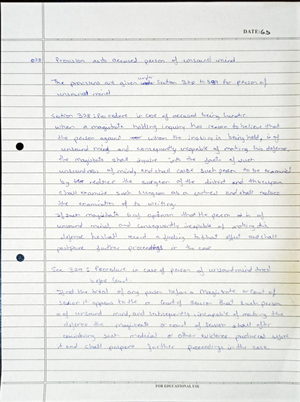 DATE: 65
Provision as to accused person of unsound mind
The provisions are given under Section 328 to 339 for person of
unsound mind
Section 328: Procedure in case of accused being lunatic
when a magistrate holding inquiry has reason to believe that
the person against whom the inquiry is being held, is of
unsound mind and consequently incapable of making his defence,
the magistrate shall inquire into the facts of such
unsoundness of mind, and shall cause such person to be examined
by the surgeon of the district and thereupon
shall examine such surgeon as a witness and shall reduce
the examination of to writing
If such magistrate is of opinion that the person is of
unsound mind, and consequently incapable of making his
defence he shall record a finding to that effect and shall
postpone further proceedings in the case
Sec 329: Procedure in case of person of unsound mind tried
before Court
If at the trial of any person before a Magistrate or Court of
session it appears to the or Court of session that such person
is of unsound mind, and consequently incapable of making his
defence the magistrate or court of session shall after
considering such medical or other evidence produced before
it and shall postpone further proceedings in the case
FOR EDUCATIONAL USE